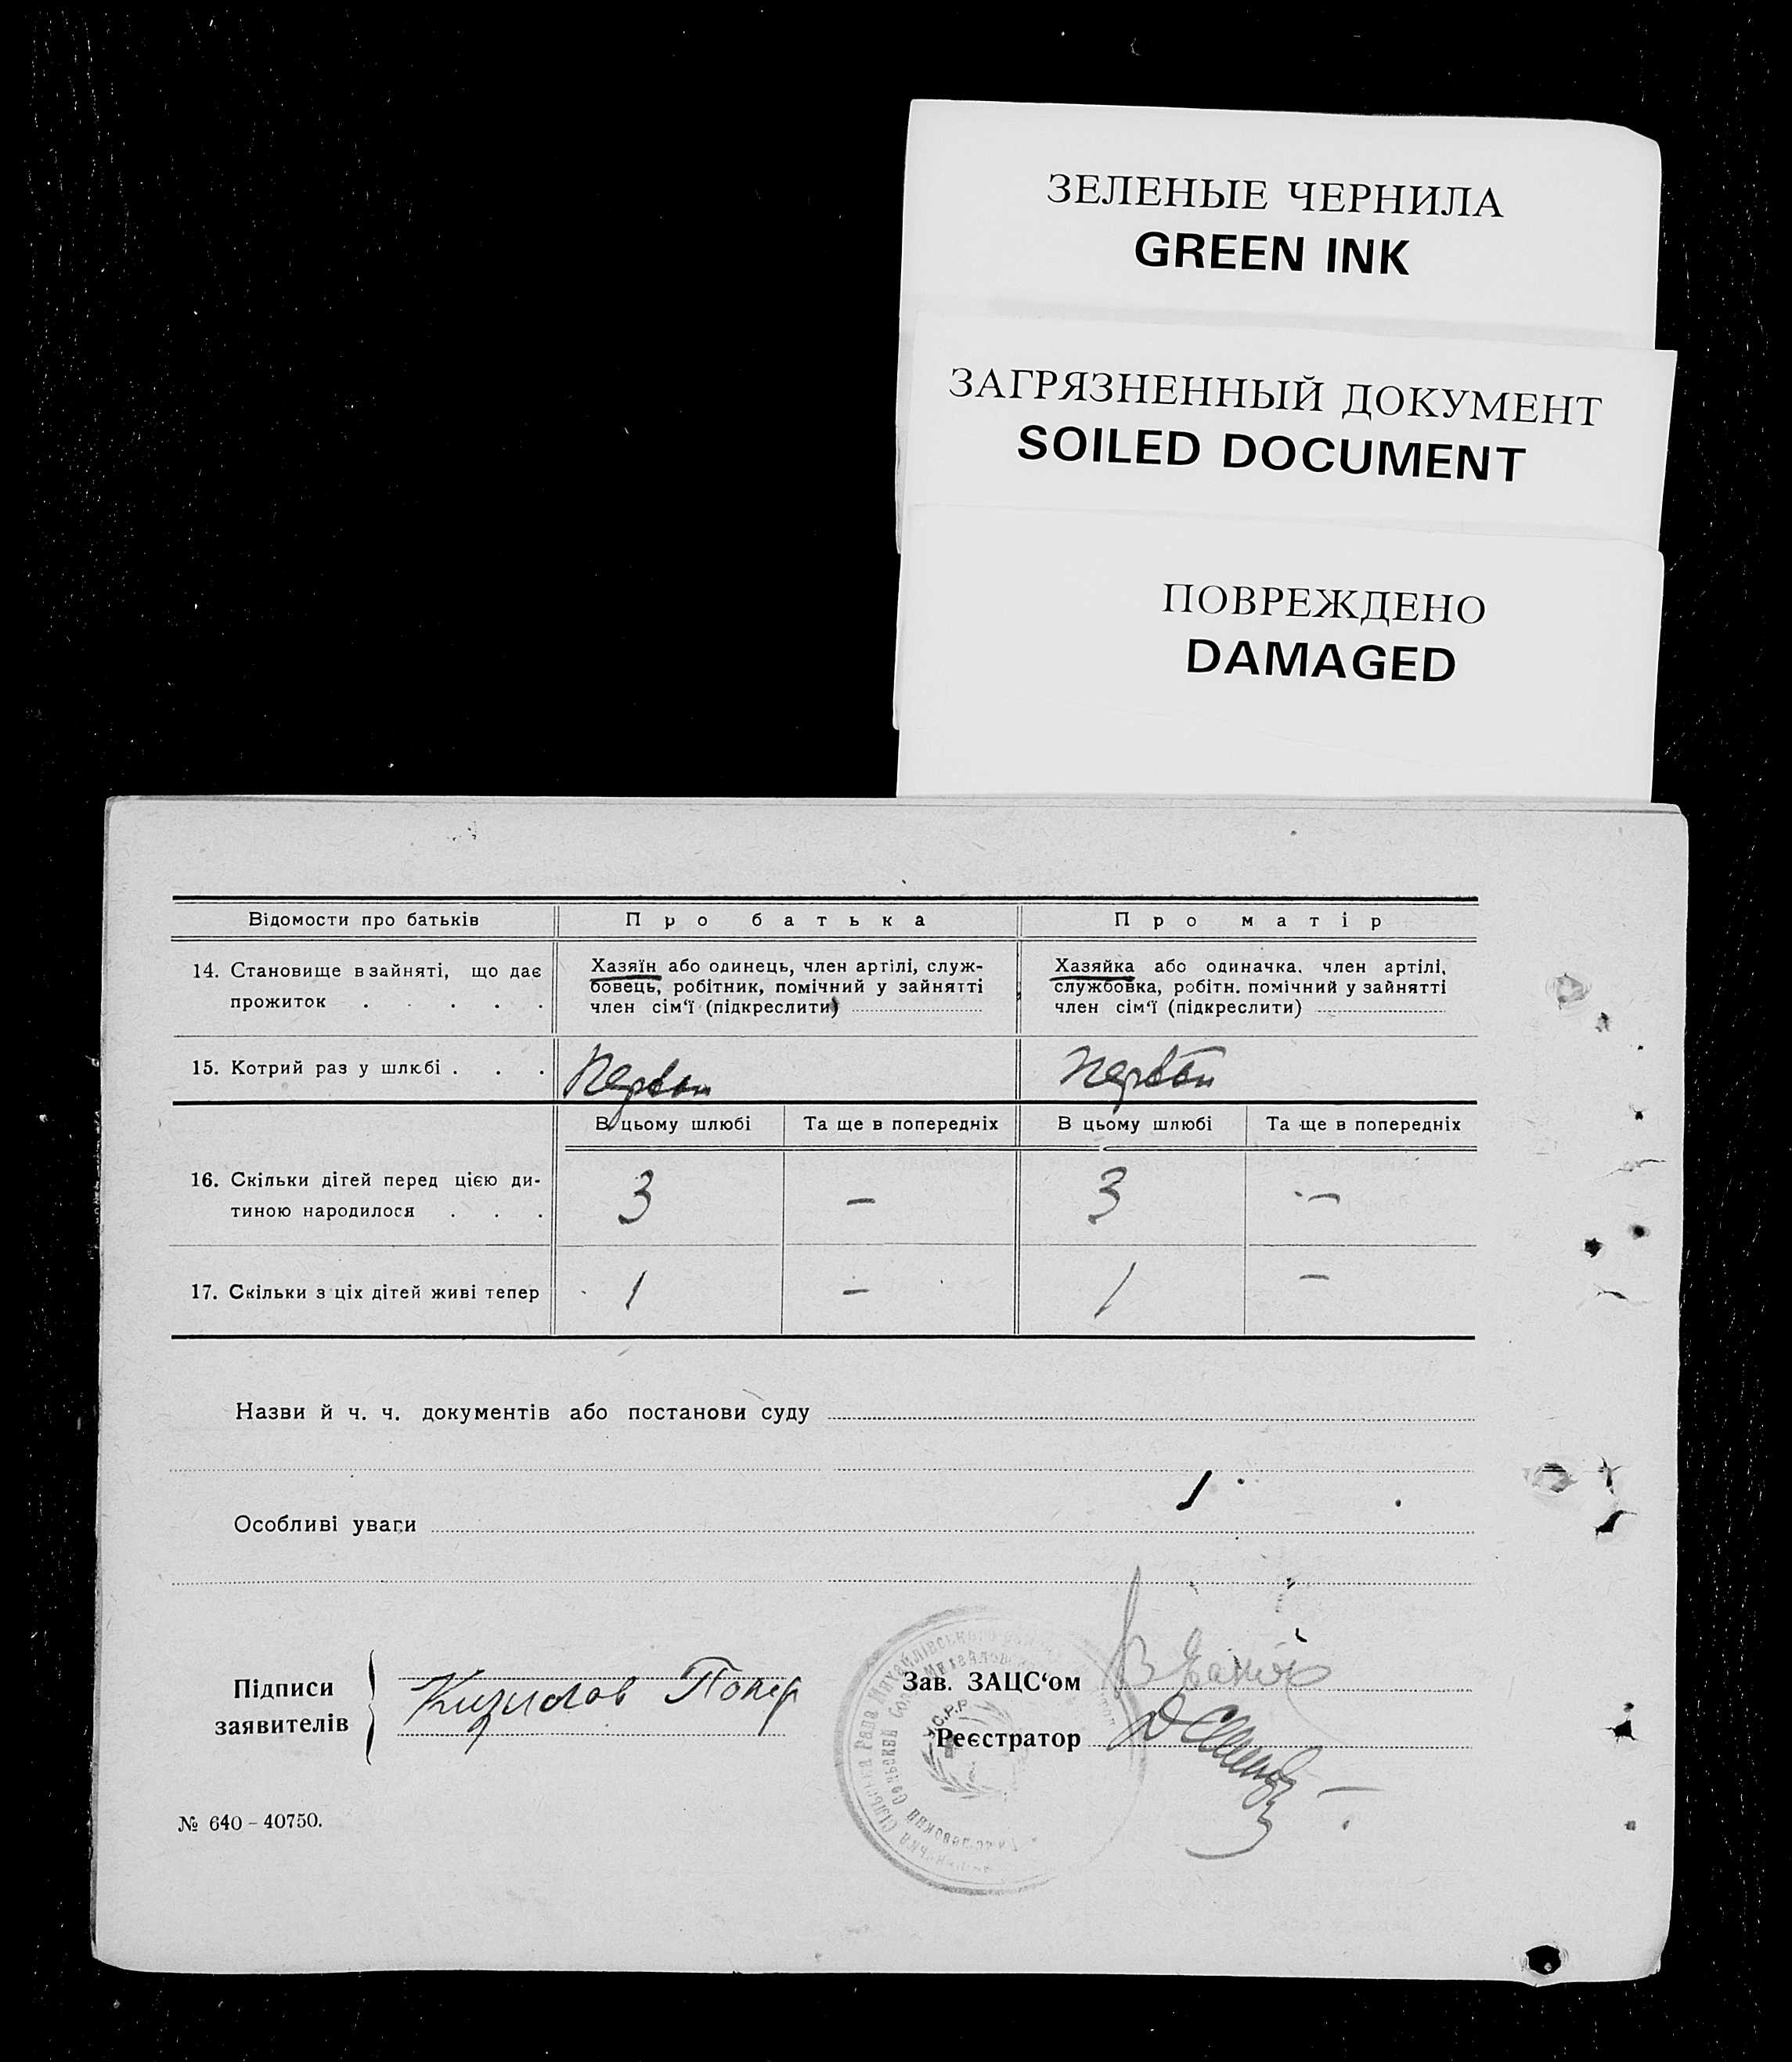 ЗЕЛЕНЫЕ ЧЕРНИЛА
GREEN INK
ЗАГРЯЗНЕННЫЙ ДОКУМЕНТ
SOILED DOCUMENT
ПОВРЕЖДЕНО
DAMAGED
Відомости про батьків
Про батька
Про матір
14. Становище в зайняті, що дає
прожиток . . . . .
Хазяїн або одинець, член артілі, служ-
бовець, робітник, помічний у зайнятті
член сім‘ї (підкреслити)
Хазяйка або одиначка. член артілі,
службовка, робітн. помічний у зайнятті
член сім‘ї (підкреслити)
15. Котрий раз у шлюбі . . .
В цьому шлюбі
Та ще в попередніх
В цьому шлюбі
Та ще в попередніх
16. Скільки дітей перед цією ди-
тиною народилося . . .
3 — 3 —
17. Скільки з ціх дітей живі тепер
1 — 1 —
Назви й ч. ч. документів або постанови суду
Особливі уваги
Підписи
заявителів
Зав. ЗАЦС‘ом
Реєстратор
№ 640 – 40750.